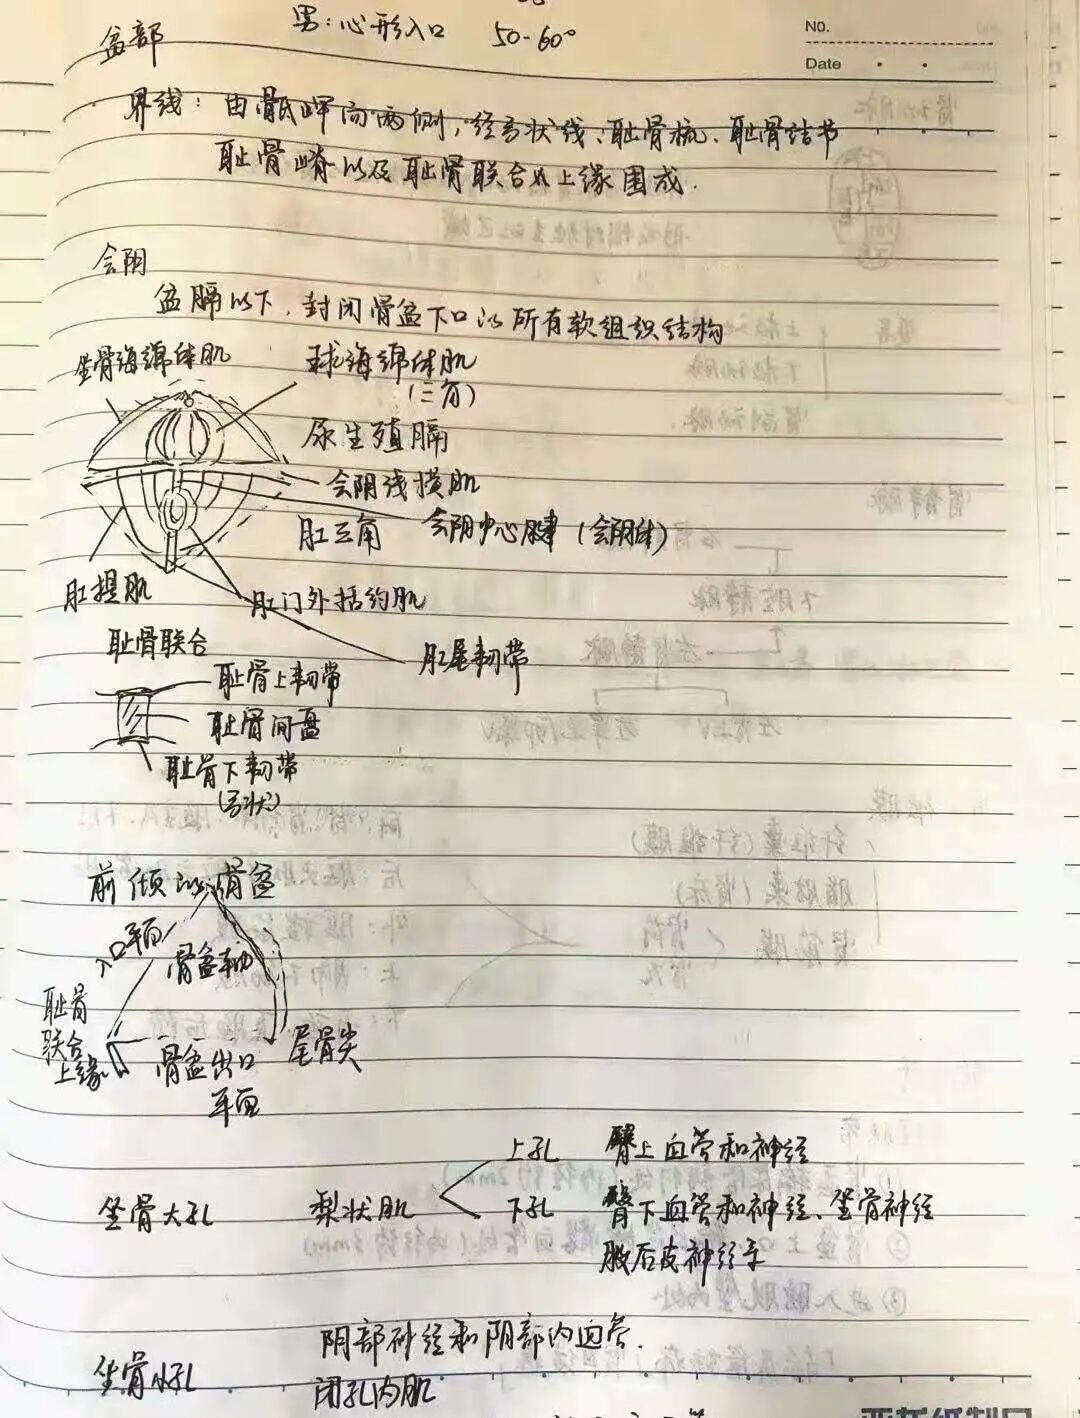 男：心形入口 50-60°
NO.
Date
盆部
界线：由骶岬向两侧，经弓状线、耻骨梳、耻骨结节
耻骨嵴以及耻骨联合以上缘围成.
会阴
盆膈以下，封闭骨盆下口以所有软组织结构
坐骨海绵体肌
球海绵体肌
(三角)
尿生殖膈
会阴浅横肌
肛三角
会阴中心腱（会阴体）
肛提肌
肛门外括约肌
肛尾韧带
耻骨联合
耻骨上韧带
耻骨间盘
耻骨下韧带
(弓状)
前倾以骨盆
入口平面
骨盆轴
耻骨
联合
上缘
骨盆出口
平面
尾骨尖
坐骨大孔
梨状肌
上孔 臀上血管和神经
下孔 臀下血管和神经、坐骨神经
股后皮神经
坐骨小孔
阴部神经和阴部内血管.
闭孔内肌